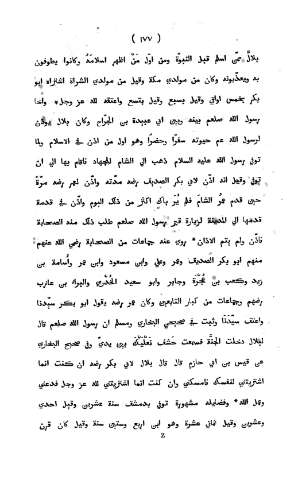 ( ١٧٧ )
بلال حتى اسلم قبل النبوة ومن اول من اظهر اسلامه وكانوا يطوفون
به ويعذبونه وكان من مولدى مكة وقيل من مولدى الشراة اشتراه ابو
بكر بخمس اواق وقيل بسبع وقيل بتسع واعتقه لله عز وجل* واخا
رسول الله صلعم بينه وبين ابى عبيدة بن الجراح وكان بلال يوذن
لرسول الله عم حيوته سفرا وحضرا وهو اول من اذن فى الاسلام ولما
توفى رسول الله عليه السلام ذهب الى الشام للجهاد فاقام بها الى ان
توفى وقيل انه اذن لابى بكر الصديف رضه مدته واذن لعمر رضه مرة
حين قدم عمر الشام فلم ير باك اكثر من ذلك اليوم واذن فى قدمة
قدمها الى المدينة لزيارة قبر رسول الله صلعم طلب ذلك منه الصحابة
فاذن ولم يتم الاذان* روى عنه جماعات من الصحابة رضى الله عنهم
منهم ابو بكر الصديف وعمر وعلى وابن مسعود وابن عمر وأسامة بن
زيد وكعب بن عجرة وجابر وابو سعيد الخدرى والبراء بن عازب
رضهم وجماعات من كبار التابعين وكان عمر رضه يقول ابو بكر سيدنا
واعتف سيدنا وثبت فى صحيحى البخارى ومسلم ان رسول الله صلعم قال
لبلال دخلت الجنة فسمعت خشف نعليك بين يدى وفى صحيح البخارى
عن قيس بن ابى حازم قال قال بلال لابى بكر رضه ان كنت انما
اشتريتنى لنفسك فامسكنى وان كنت انما اشتريتنى لله عز وجل فدعنى
وعمل الله* وفضايله مشهورة توفى بدمشف سنة عشرين وقيل احدى
وعشرين وقيل ثمانى عشرة وهو ابن اربع وستين سنة وقيل كان قرن
Z